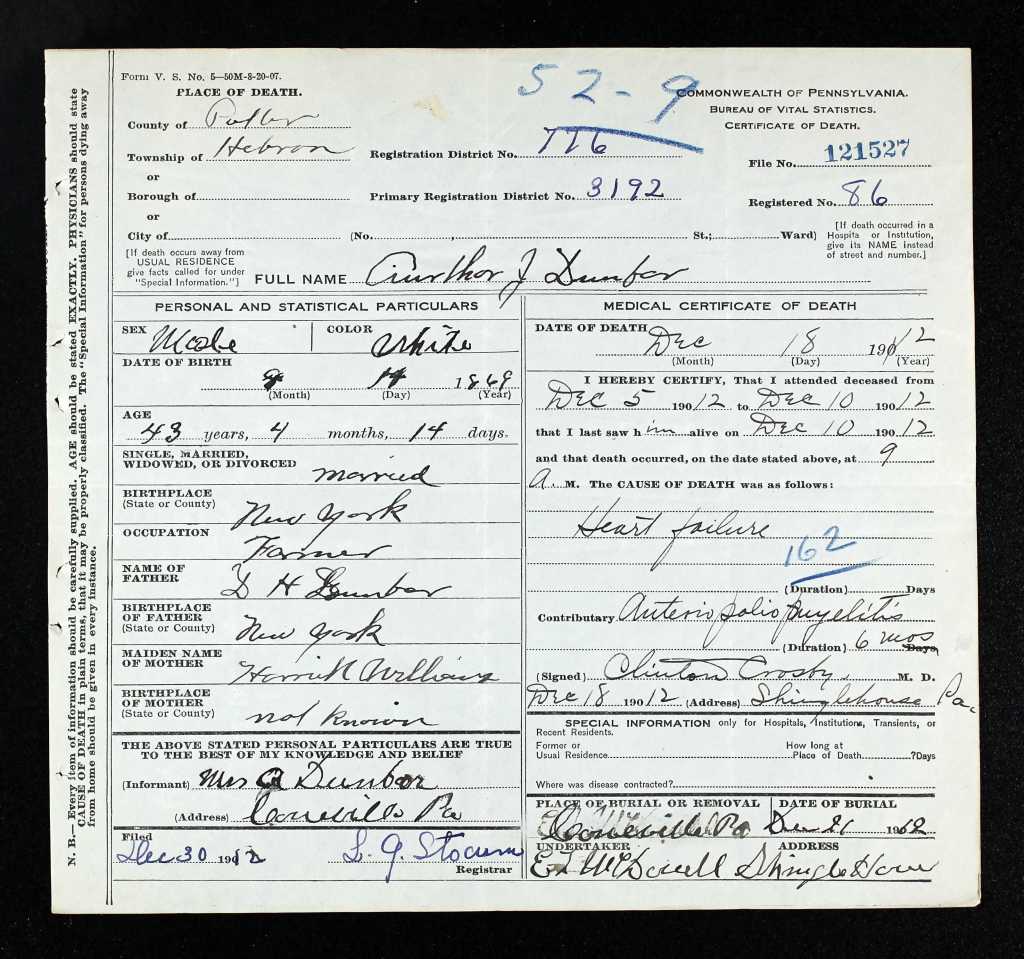 Form V. S. No. 5—50M-8-20-07.
52-9
PLACE OF DEATH.
COMMONWEALTH OF PENNSYLVANIA.
BUREAU OF VITAL STATISTICS.
CERTIFICATE OF DEATH.
County of Potter
Township of Hebron
Registration District No. 776
File No. 121527
or
Borough of
Primary Registration District No. 3192
Registered No. 86
or
City of (No. , St.; Ward)
[If death occurred in a Hospital or Institution, give its NAME instead of street and number.]
[If death occurs away from USUAL RESIDENCE give facts called for under "Special Information."]
FULL NAME Aurthor J Dunbar
PERSONAL AND STATISTICAL PARTICULARS
SEX Male
COLOR White
DATE OF BIRTH
1869
(Month) (Day) (Year)
AGE
43 years, 4 months, 14 days.
SINGLE, MARRIED,
WIDOWED, OR DIVORCED married
BIRTHPLACE
(State or County) New York
OCCUPATION
Farmer
NAME OF
FATHER D H Dunbar
BIRTHPLACE
OF FATHER
(State or County) New York
MAIDEN NAME
OF MOTHER Williams
BIRTHPLACE
OF MOTHER
(State or County) not known
THE ABOVE STATED PERSONAL PARTICULARS ARE TRUE
TO THE BEST OF MY KNOWLEDGE AND BELIEF
(Informant) Mrs A Dunbar
(Address) Coneville Pa
Filed
Dec 30 1912
L. J. Stocum
Registrar
MEDICAL CERTIFICATE OF DEATH
DATE OF DEATH
Dec 18 1912
(Month) (Day) (Year)
I HEREBY CERTIFY, That I attended deceased from
Dec 5 1912 to Dec 10 1912
that I last saw him alive on Dec 10 1912
and that death occurred, on the date stated above, at 9
A. M. The CAUSE OF DEATH was as follows:
Heart failure
162
(Duration) Days
Contributary Anterio polio myelitis
(Duration) 6 mos Days
(Signed) Clinton Crosby, M. D.
Dec 18 1912 (Address) Shinglehouse Pa.
SPECIAL INFORMATION only for Hospitals, Institutions, Transients, or
Recent Residents.
Former or
Usual Residence
How long at
Place of Death ?Days
Where was disease contracted?
PLACE OF BURIAL OR REMOVAL
Coneville Pa
DATE OF BURIAL
Dec 21 1912
UNDERTAKER
McDowell
ADDRESS
Shingle House
N. B.—Every item of information should be carefully supplied. AGE should be stated EXACTLY. PHYSICIANS should state
CAUSE OF DEATH in plain terms, that it may be properly classified. The "Special Information" for persons dying away
from home should be given in every instance.